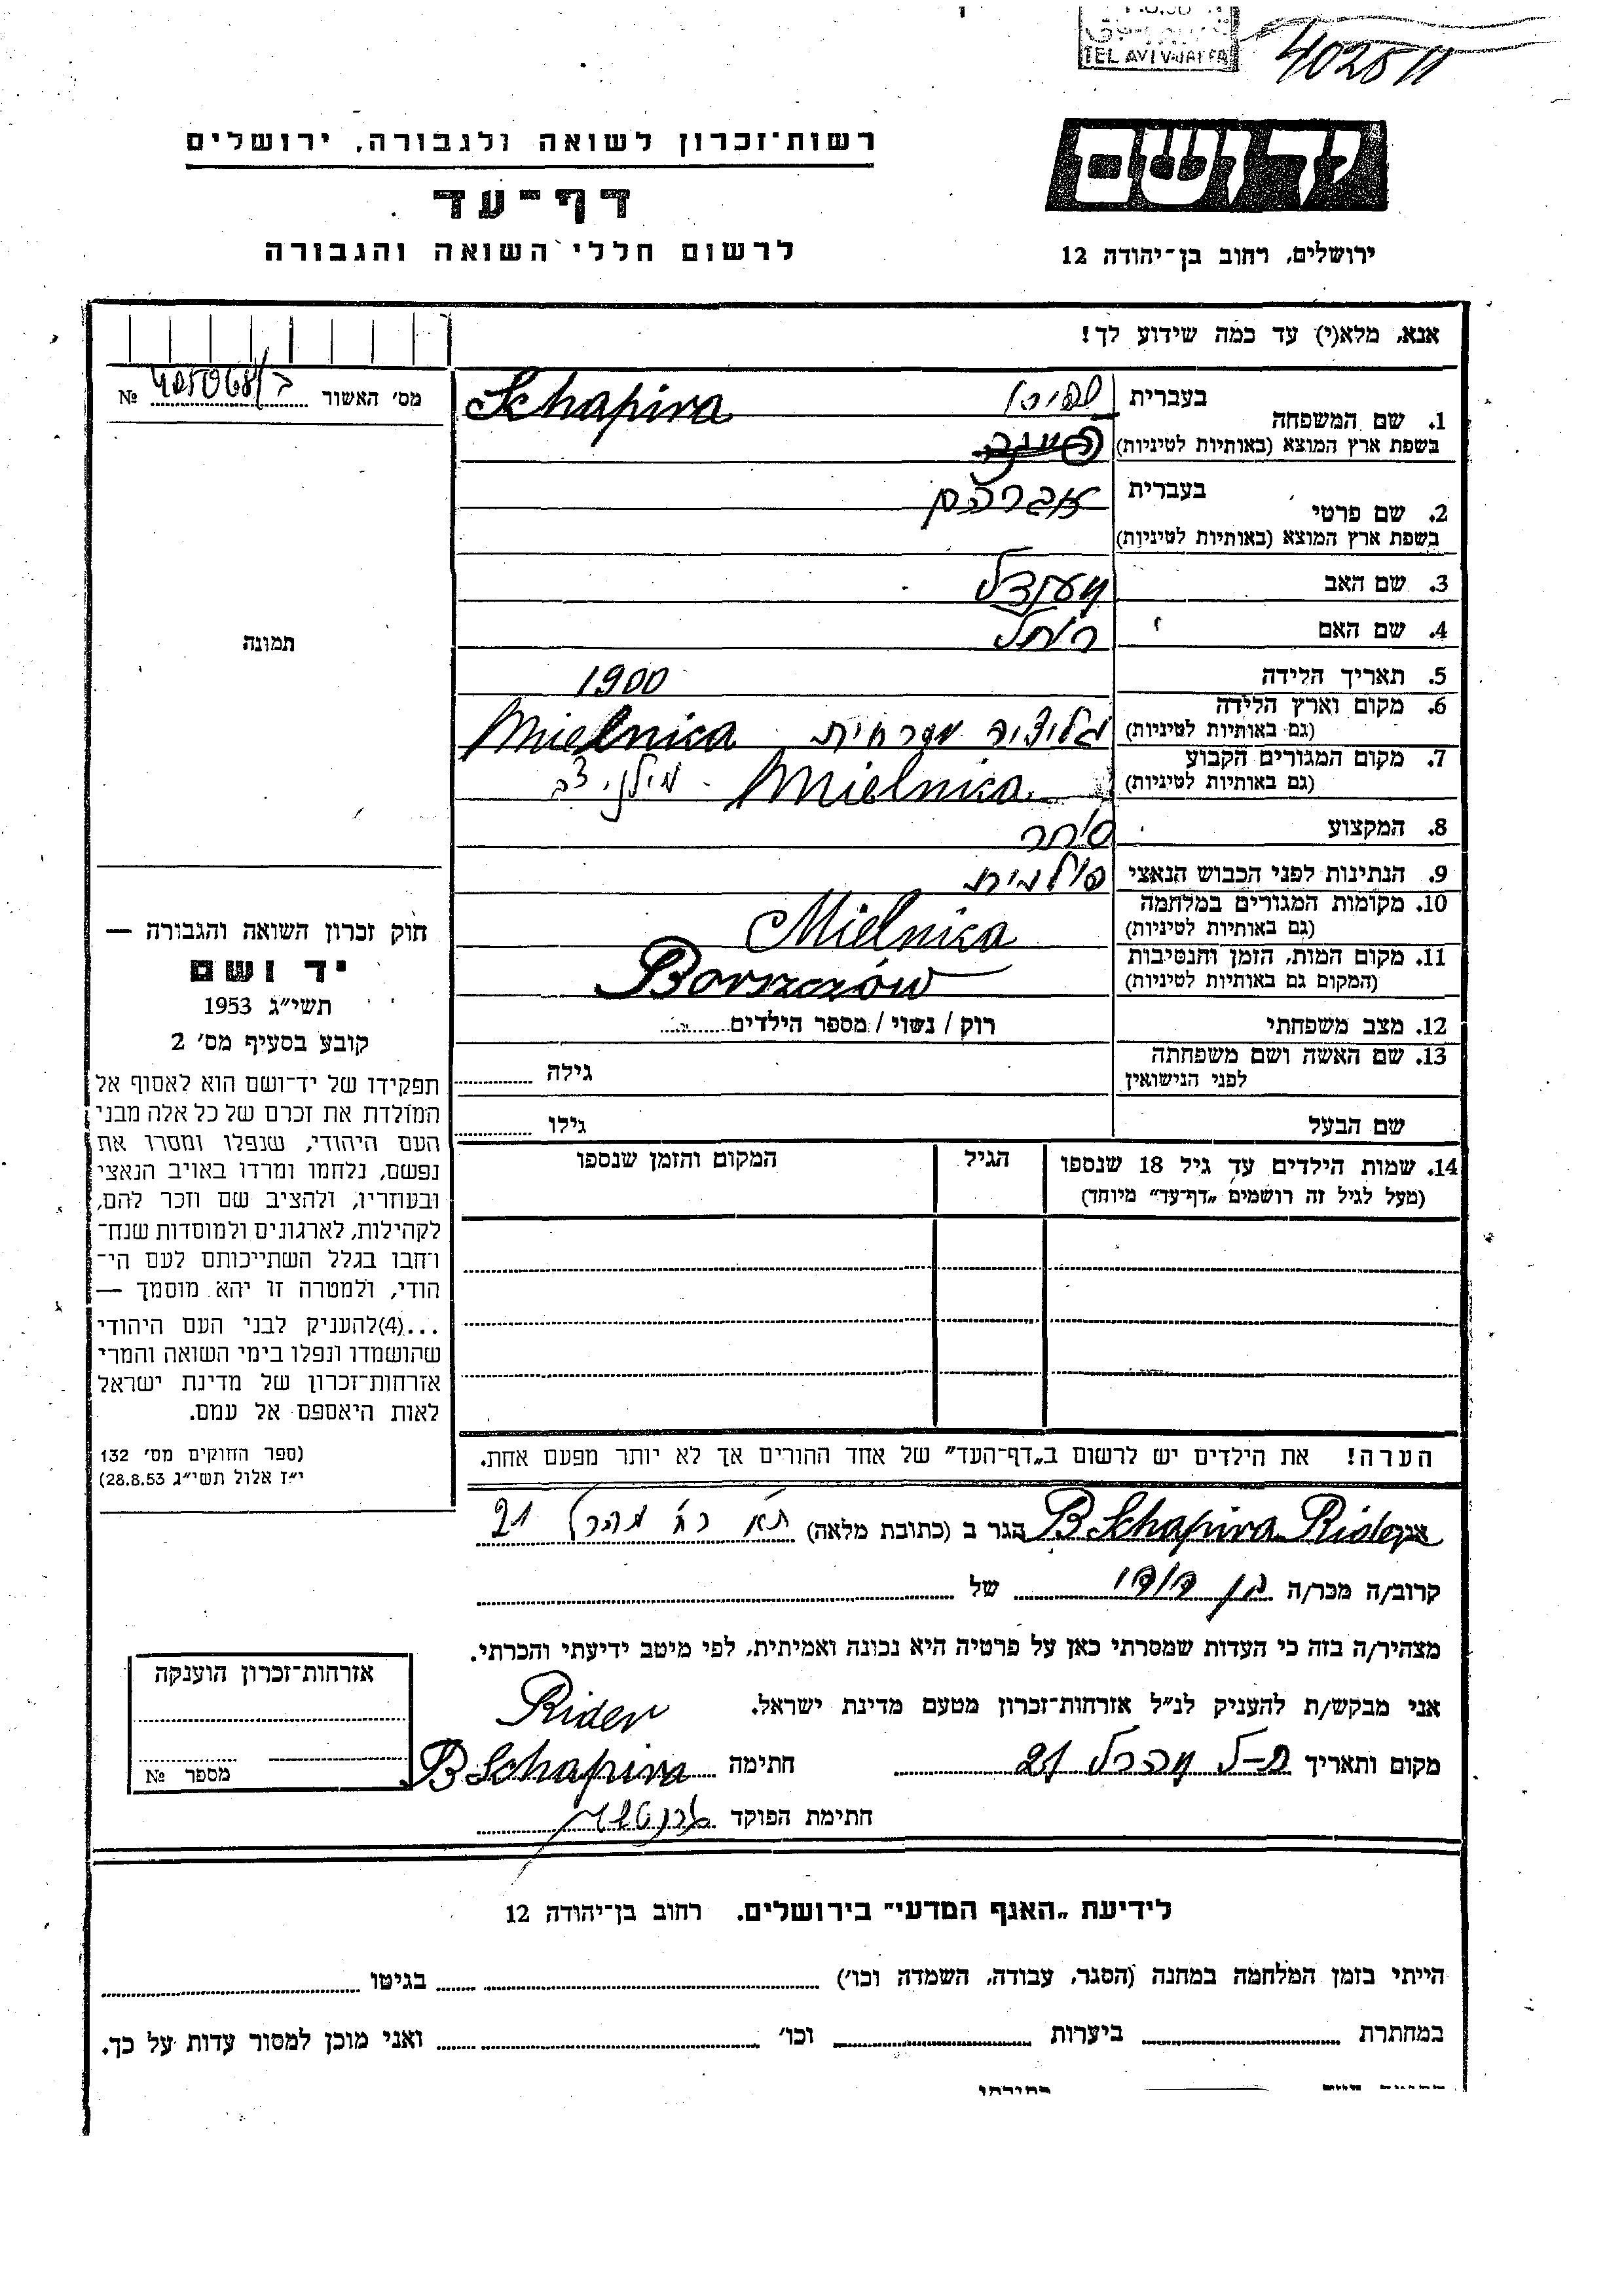 TEL AVIV-JAFFA
40258
רשות־זכרון לשואה ולגבורה, ירושלים
יד ושם
דף־עד
לרשום חללי השואה והגבורה
ירושלים, רחוב בן־יהודה 12
אנא, מלא(י) עד כמה שידוע לך!
מס׳ האשור № 405068/ב
1. שם המשפחה בעברית שפירא
בשפת ארץ המוצא (באותיות לטיניות) Schapira
2. שם פרטי בעברית אברהם
בשפת ארץ המוצא (באותיות לטיניות)
3. שם האב מענדל
4. שם האם רחל
5. תאריך הלידה 1900
6. מקום וארץ הלידה גליציה מזרחית Mielnica
(גם באותיות לטיניות)
7. מקום המגורים הקבוע Mielnica - מילניצה
(גם באותיות לטיניות)
8. המקצוע סוחר
9. הנתינות לפני הכבוש הנאצי פולנית
10. מקומות המגורים במלחמה Mielnica
(גם באותיות לטיניות)
11. מקום המות, הזמן והנסיבות Borszczów
(המקום גם באותיות לטיניות)
12. מצב משפחתי רוק / נשוי / מספר הילדים
13. שם האשה ושם משפחתה גילה
לפני הנישואין
שם הבעל גילו
14. שמות הילדים עד גיל 18 שנספו הגיל המקום והזמן שנספו
(מעל לגיל זה רושמים „דף־עד” מיוחד)
הערה! את הילדים יש לרשום ב„דף־העד” של אחד ההורים אך לא יותר מפעם אחת.
תמונה
חוק זכרון השואה והגבורה —
יד ושם
תשי״ג 1953
קובע בסעיף מס׳ 2
תפקידו של יד־ושם הוא לאסוף אל
המולדת את זכרם של כל אלה מבני
העם היהודי, שנפלו ומסרו את
נפשם, נלחמו ומרדו באויב הנאצי
ובעוזריו, ולהציב שם וזכר להם,
לקהילות, לארגונים ולמוסדות שנח־
רבו בגלל השתייכותם לעם הי־
הודי, ולמטרה זו יהא מוסמך —
...(4)להעניק לבני העם היהודי
שהושמדו ונפלו בימי השואה והמרי
אזרחות־זכרון של מדינת ישראל
לאות היאספם אל עמם.
(ספר החוקים מס׳ 132
י״ז אלול תשי״ג 28.8.53)
אני B Schapira Rider הגר ב (כתובת מלאה) תא רח מהרל 21
קרוב/ה מכר/ה בן דודו של
מצהיר/ה בזה כי העדות שמסרתי כאן על פרטיה היא נכונה ואמיתית, לפי מיטב ידיעתי והכרתי.
אני מבקש/ת להעניק לנ״ל אזרחות־זכרון מטעם מדינת ישראל.
Rider
מקום ותאריך ת-א מהרל 21 חתימה B Schapira
חתימת הפוקד
אזרחות־זכרון הוענקה
מספר №
לידיעת „האגף המדעי” בירושלים. רחוב בן־יהודה 12
הייתי בזמן המלחמה במחנה (הסגר, עבודה, השמדה וכו׳) בגיטו
במחתרת ביערות וכו׳ ואני מוכן למסור עדות על כך.